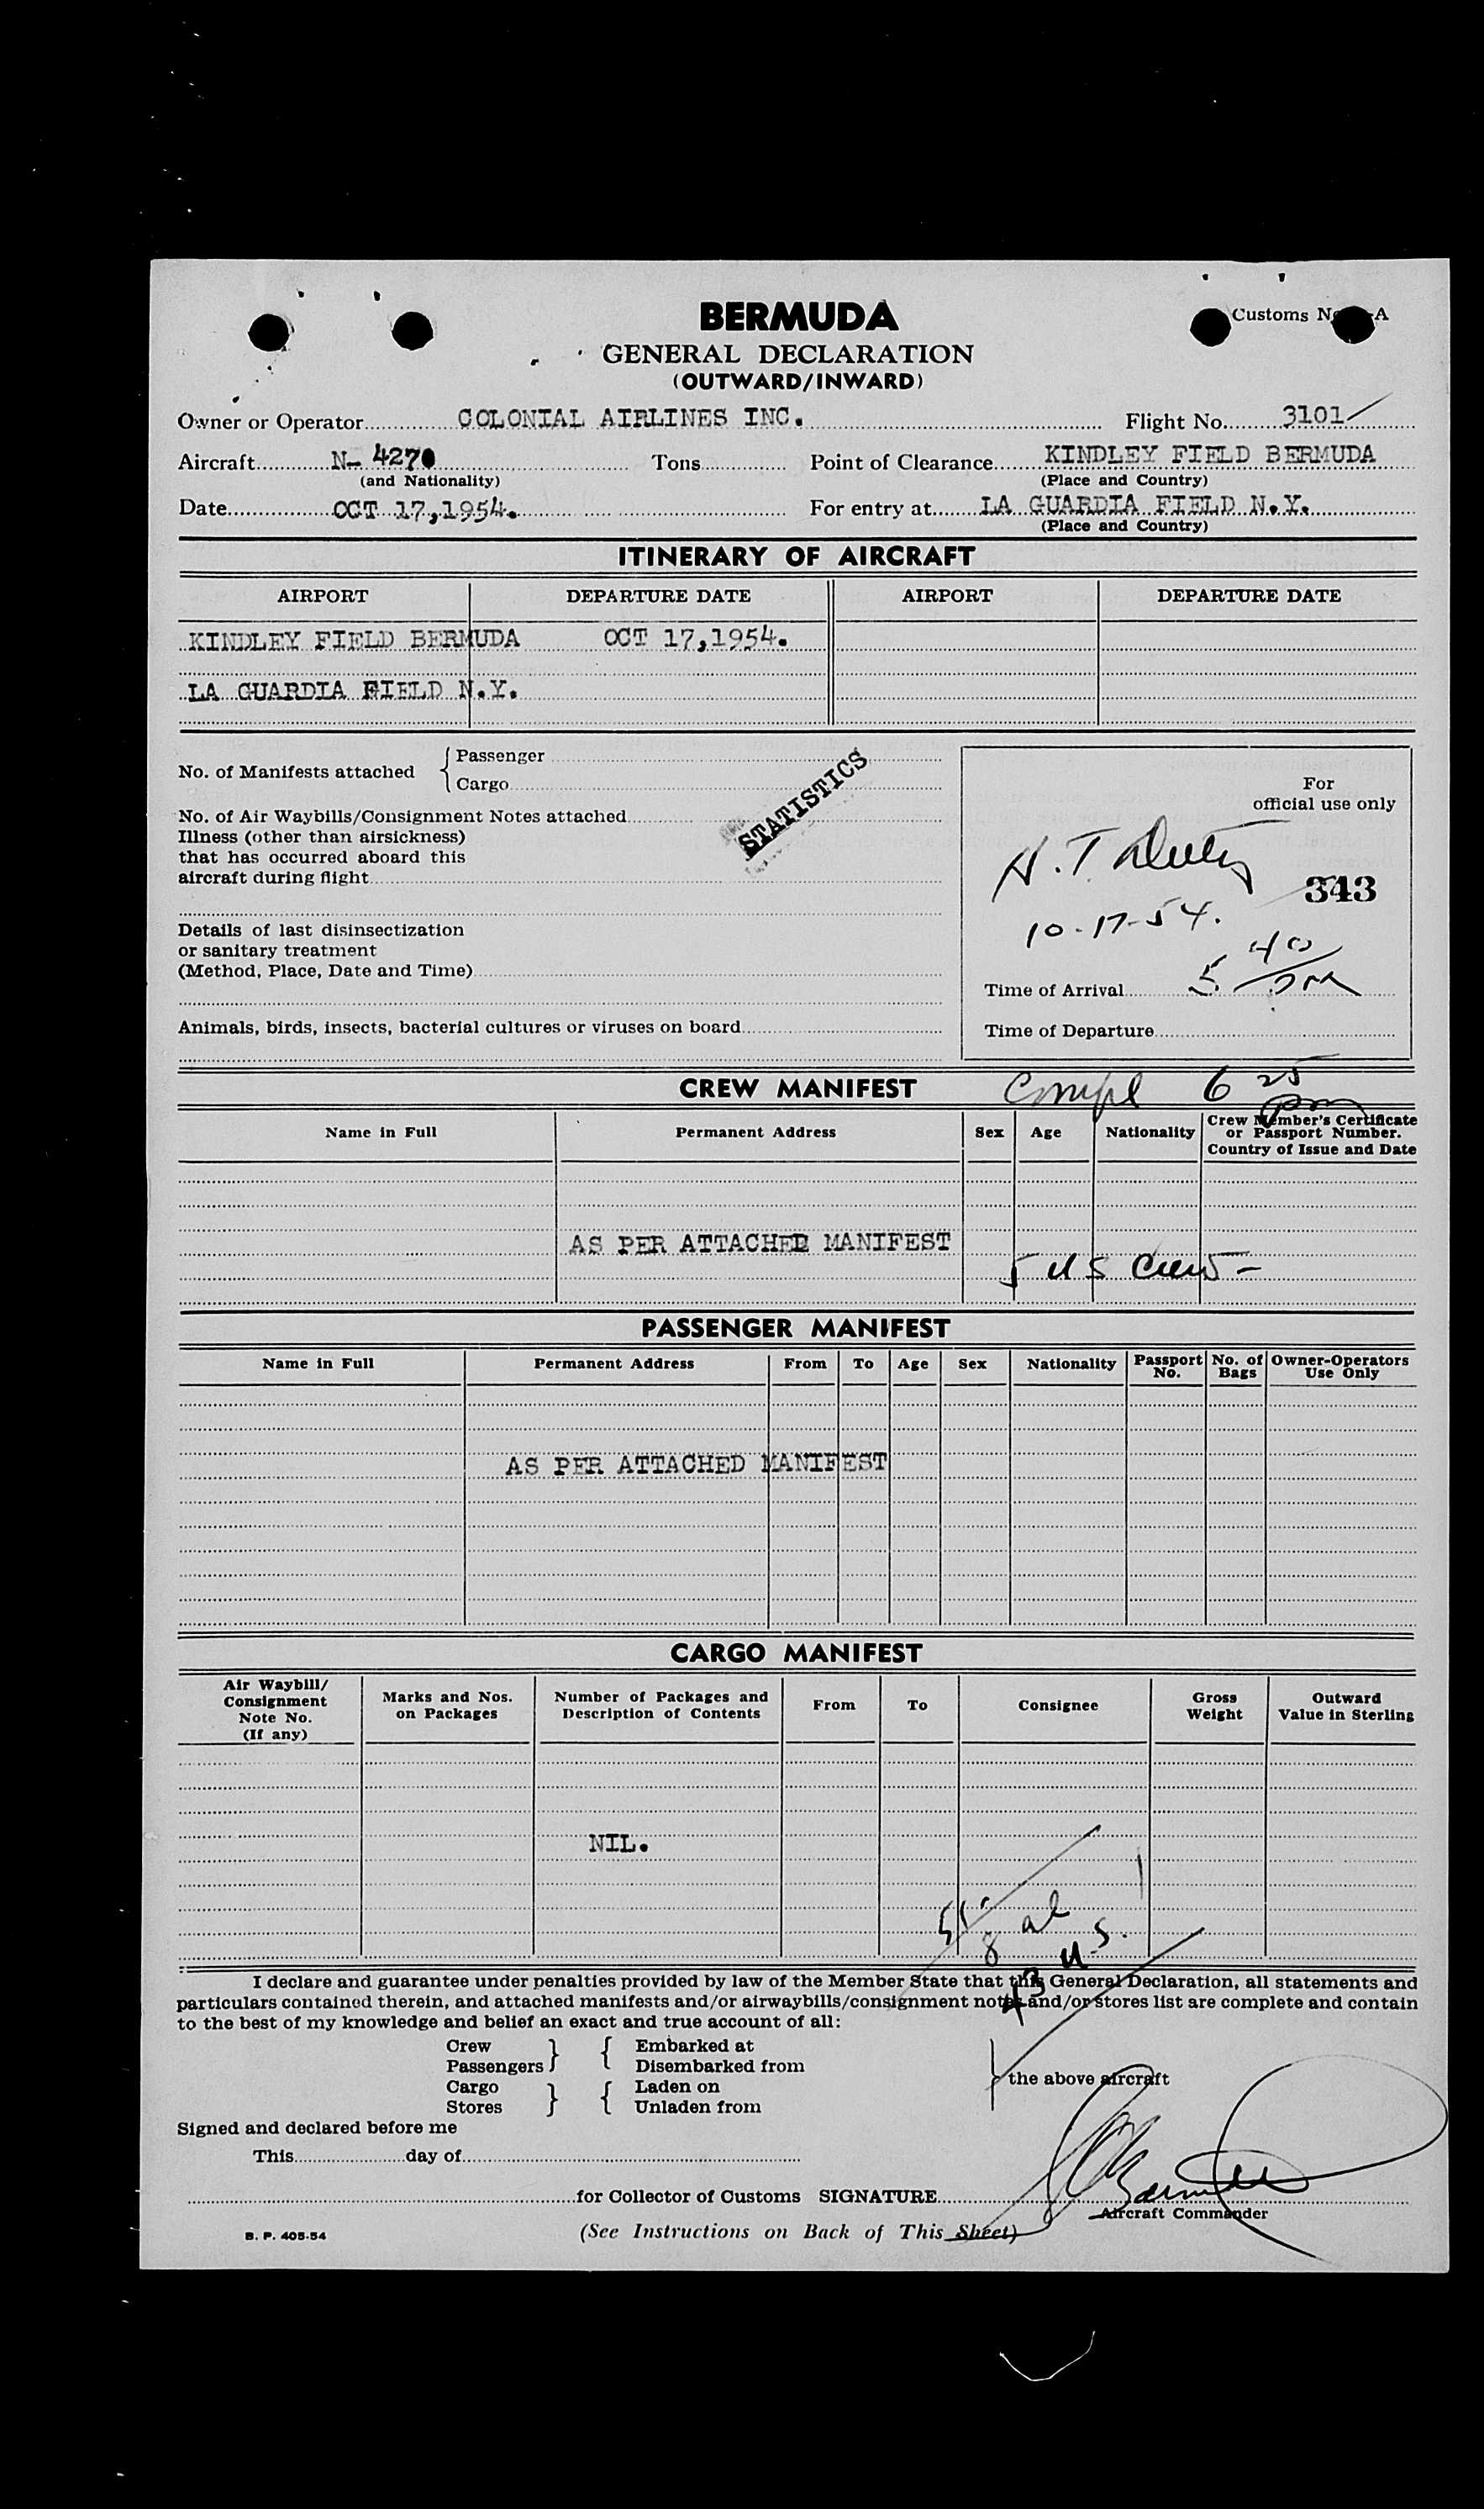 BERMUDA
Customs No. -A
GENERAL DECLARATION
(OUTWARD/INWARD)
Owner or Operator COLONIAL AIRLINES INC. Flight No. 3101
Aircraft N- 4270 Tons Point of Clearance KINDLEY FIELD BERMUDA
(and Nationality) (Place and Country)
Date OCT 17,1954. For entry at LA GUARDIA FIELD N.Y.
(Place and Country)
ITINERARY OF AIRCRAFT
AIRPORT DEPARTURE DATE AIRPORT DEPARTURE DATE
KINDLEY FIELD BERMUDA OCT 17,1954.
LA GUARDIA FIELD N.Y.
No. of Manifests attached { Passenger
Cargo
STATISTICS
No. of Air Waybills/Consignment Notes attached
Illness (other than airsickness)
that has occurred aboard this
aircraft during flight
Details of last disinsectization
or sanitary treatment
(Method, Place, Date and Time)
Animals, birds, insects, bacterial cultures or viruses on board
For
official use only
H. T.
343
10-17-54.
Time of Arrival 5 40 pm
Time of Departure
CREW MANIFEST Compl 6 25 pm
Name in Full Permanent Address Sex Age Nationality Crew Member's Certificate
or Passport Number.
Country of Issue and Date
AS PER ATTACHED MANIFEST
5 US Crew -
PASSENGER MANIFEST
Name in Full Permanent Address From To Age Sex Nationality Passport No. No. of Bags Owner-Operators Use Only
AS PER ATTACHED MANIFEST
CARGO MANIFEST
Air Waybill/ Consignment Note No. (If any) Marks and Nos. on Packages Number of Packages and Description of Contents From To Consignee Gross Weight Outward Value in Sterling
NIL.
8 al
43 U.S.
I declare and guarantee under penalties provided by law of the Member State that this General Declaration, all statements and
particulars contained therein, and attached manifests and/or airwaybills/consignment notes and/or stores list are complete and contain
to the best of my knowledge and belief an exact and true account of all:
Crew } { Embarked at
Passengers Disembarked from
} the above aircraft
Cargo } { Laden on
Stores Unladen from
Signed and declared before me
This day of
for Collector of Customs SIGNATURE
Aircraft Commander
B. P. 405-54 (See Instructions on Back of This Sheet)